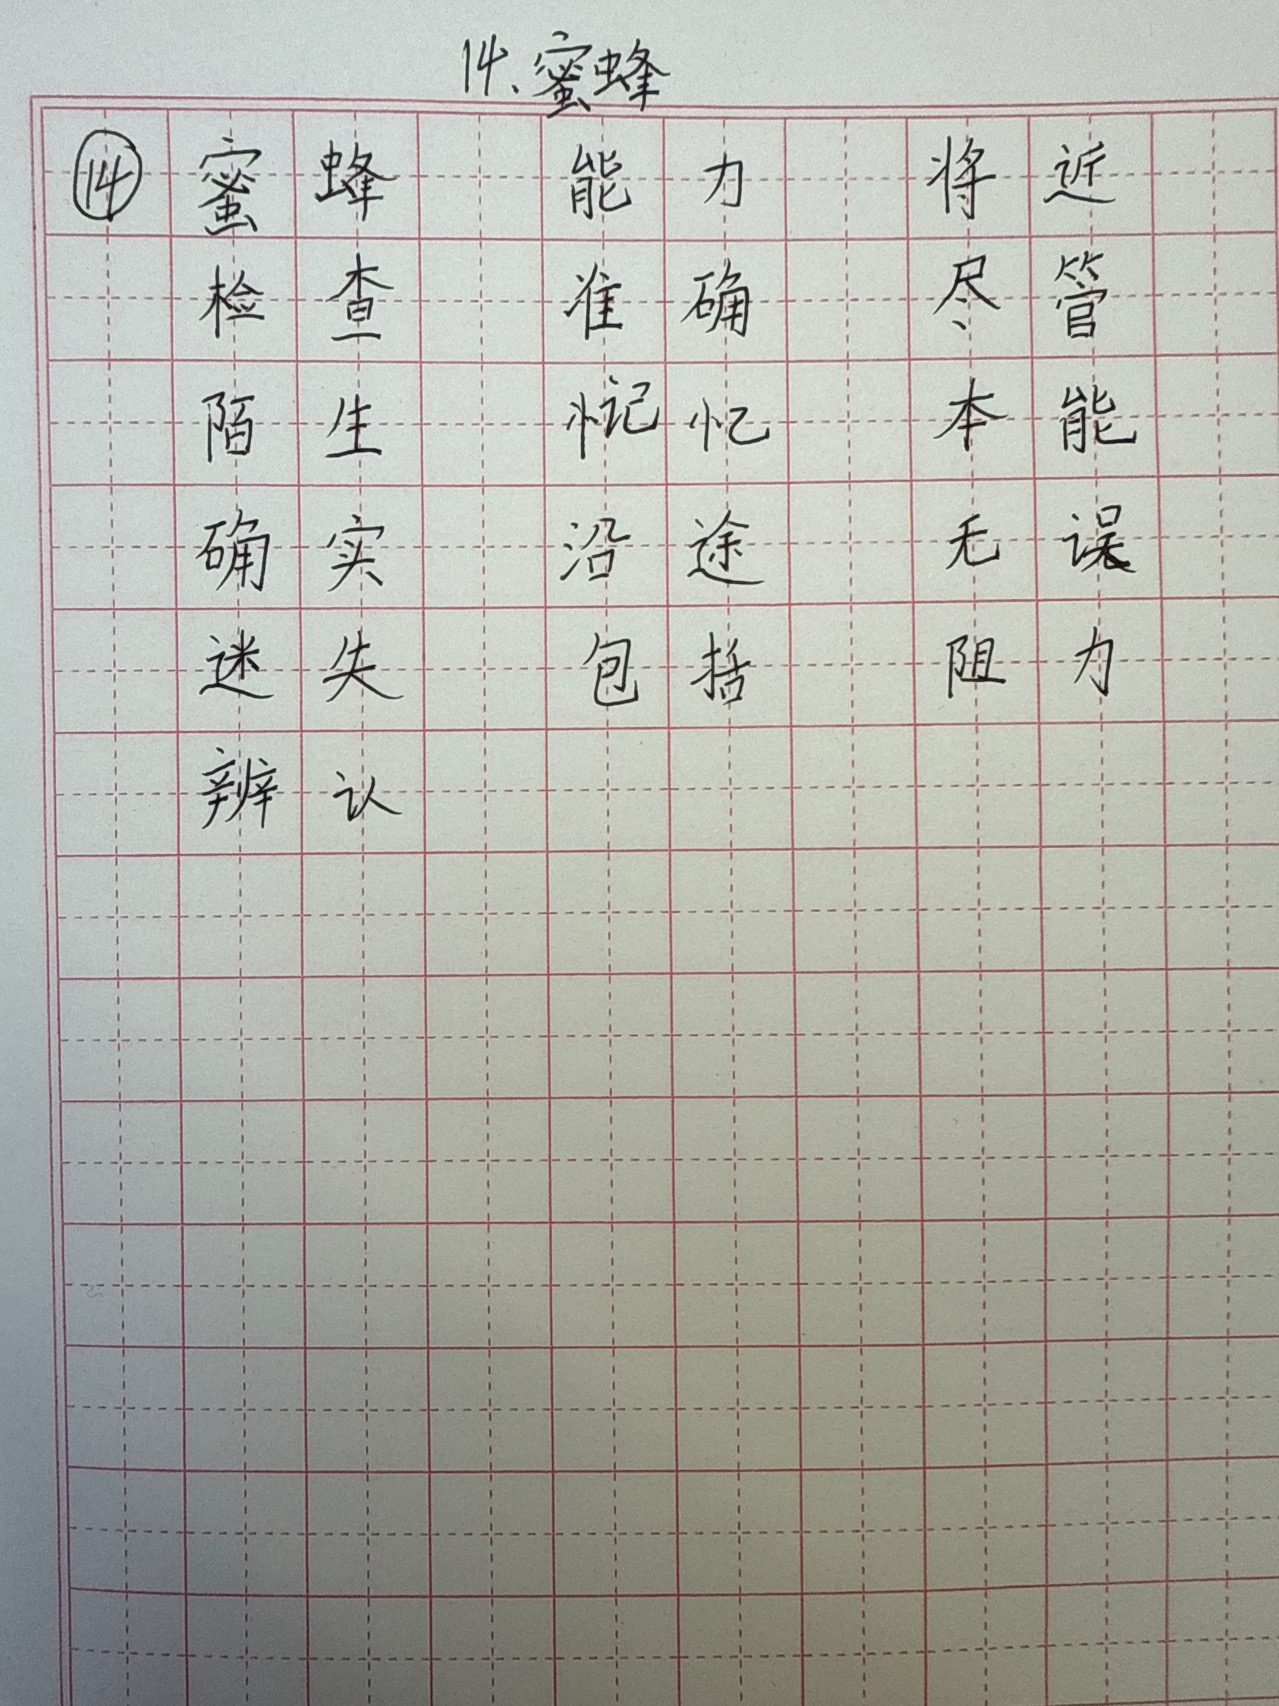 14、蜜蜂
⑭ 蜜蜂 能力 将近
检查 准确 尽管
陌生 记忆 本能
确实 沿途 无误
迷失 包括 阻力
辨认